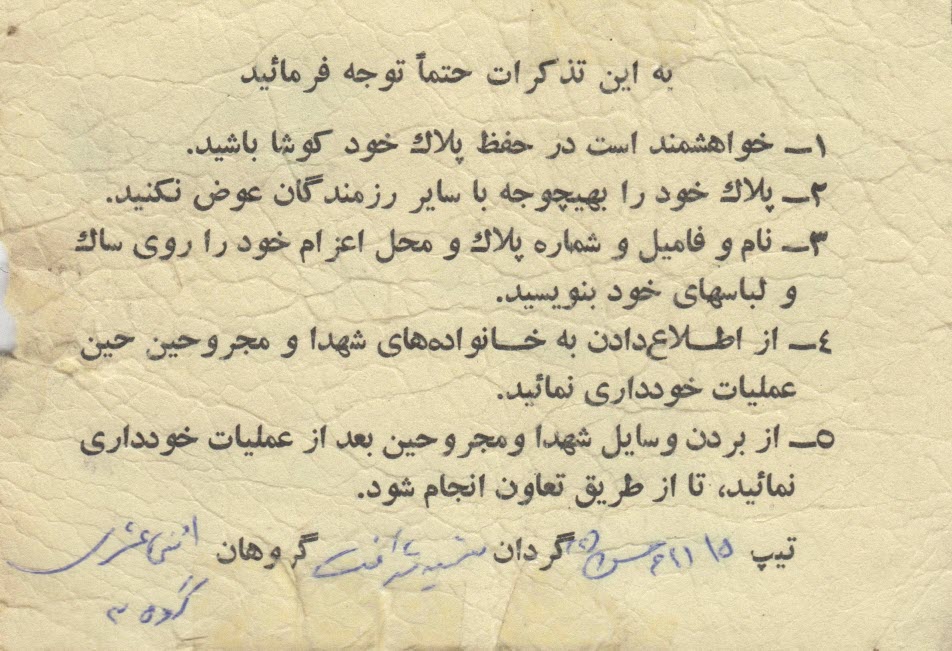 به این تذکرات حتماً توجه فرمائید
۱ــ خواهشمند است در حفظ پلاك خود کوشا باشید.
۲ــ پلاك خود را بهیچوجه با سایر رزمندگان عوض نکنید.
۳ــ نام و فامیل و شماره پلاك و محل اعزام خود را روی ساك
و لباسهای خود بنویسید.
٤ــ از اطــلاع‌دادن به خــانواده‌های شهدا و مجروحین حین
عملیات خودداری نمائید.
۵ــ از بردن وسایل شهدا ومجروحین بعد از عملیات خودداری
نمائید، تا از طریق تعاون انجام شود.
تیپ ۱۵ گردان گروهان اثنی عشری
گروه ۳